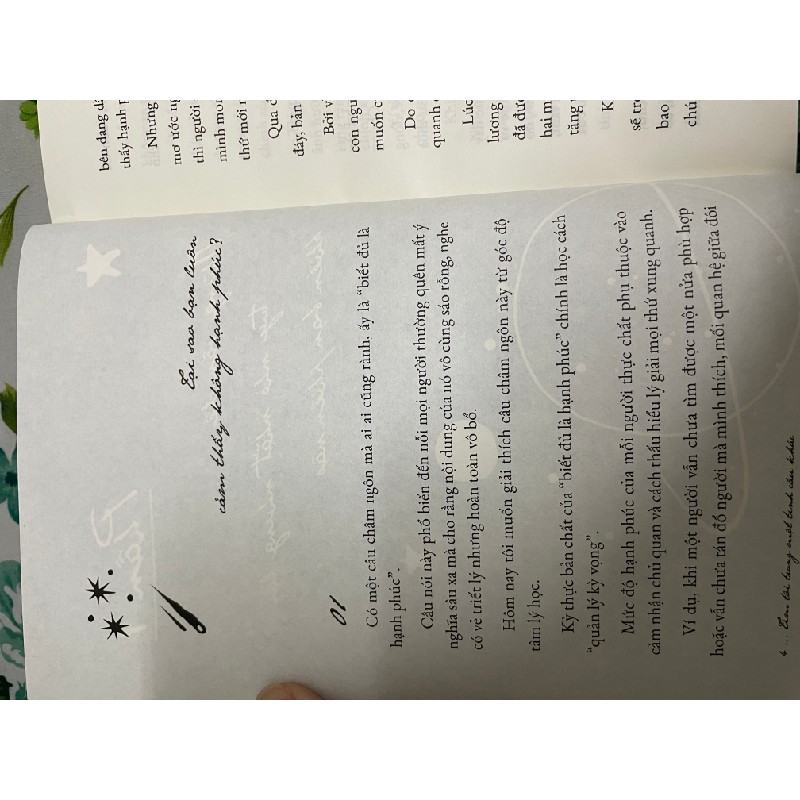 Tại sao bạn luôn
cảm thấy không hạnh phúc?
01
Có một câu châm ngôn mà ai ai cũng rành, ấy là “biết đủ là
hạnh phúc”.
Câu nói này phổ biến đến nỗi mọi người thường quên mất ý
nghĩa sâu xa mà cho rằng nội dung của nó vô cùng sáo rỗng, nghe
có vẻ triết lý nhưng hoàn toàn vô bổ.
Hôm nay tôi muốn giải thích câu châm ngôn này từ góc độ
tâm lý học.
Kỳ thực bản chất của “biết đủ là hạnh phúc” chính là học cách
“quản lý kỳ vọng”.
Mức độ hạnh phúc của mỗi người thực chất phụ thuộc vào
cảm nhận chủ quan và cách thấu hiểu lý giải mọi thứ xung quanh.
Ví dụ, khi một người vẫn chưa tìm được một nửa phù hợp
hoặc vẫn chưa tán đổ người mà mình thích, mối quan hệ giữa đôi
6 ...
bên đang
thấy hạnh
Nhưng
mơ ước
thì người
mình
thứ mới
Qua
đây, bản
Bởi
con
muốn
Do
quanh
Lúc
lương
đã
hai
tăng
K
sẽ
bao
chú